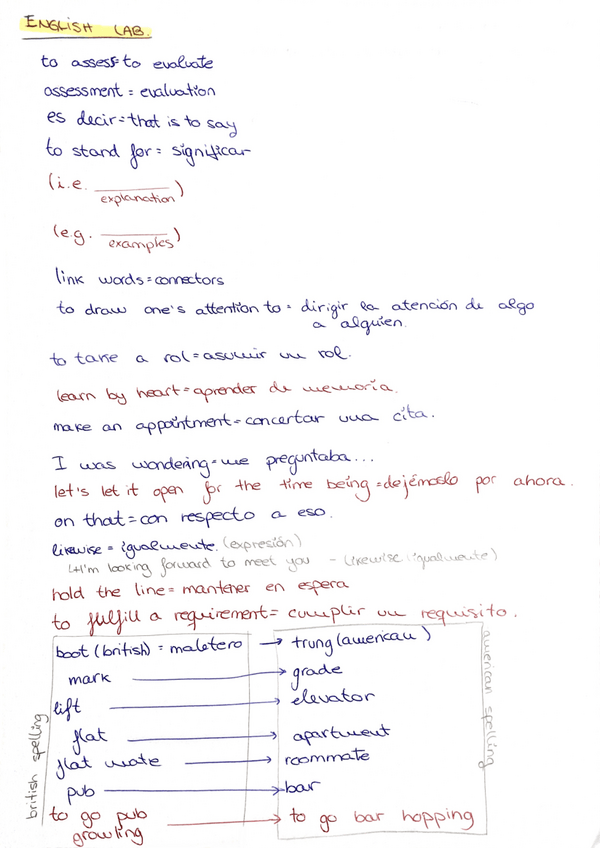 ENGLISH LAB.
to assess=to evaluate
assessment = evaluation
es decir=that is to say
to stand for= significar
(i.e. ________)
explanation
(e.g. ________)
examples
link words=connectors
to draw one's attention to = dirigir la atención de algo
a alguien.
to take a rol=asumir un rol.
learn by heart=aprender de memoria.
make an appointment=concertar una cita.
I was wondering=me preguntaba...
let's let it open for the time being=dejémoslo por ahora.
on that=con respecto a eso.
likewise = igualmente. (expresión)
↳I'm looking forward to meet you - (likewise: igualmente)
hold the line= mantener en espera
to fulfill a requirement= cumplir un requisito.
boot (british) = maletero → trung (american)
mark → grade
lift → elevator
flat → apartment
flat mate → roommate
pub → bar
to go pub → to go bar hopping
growling
british spelling
american spelling